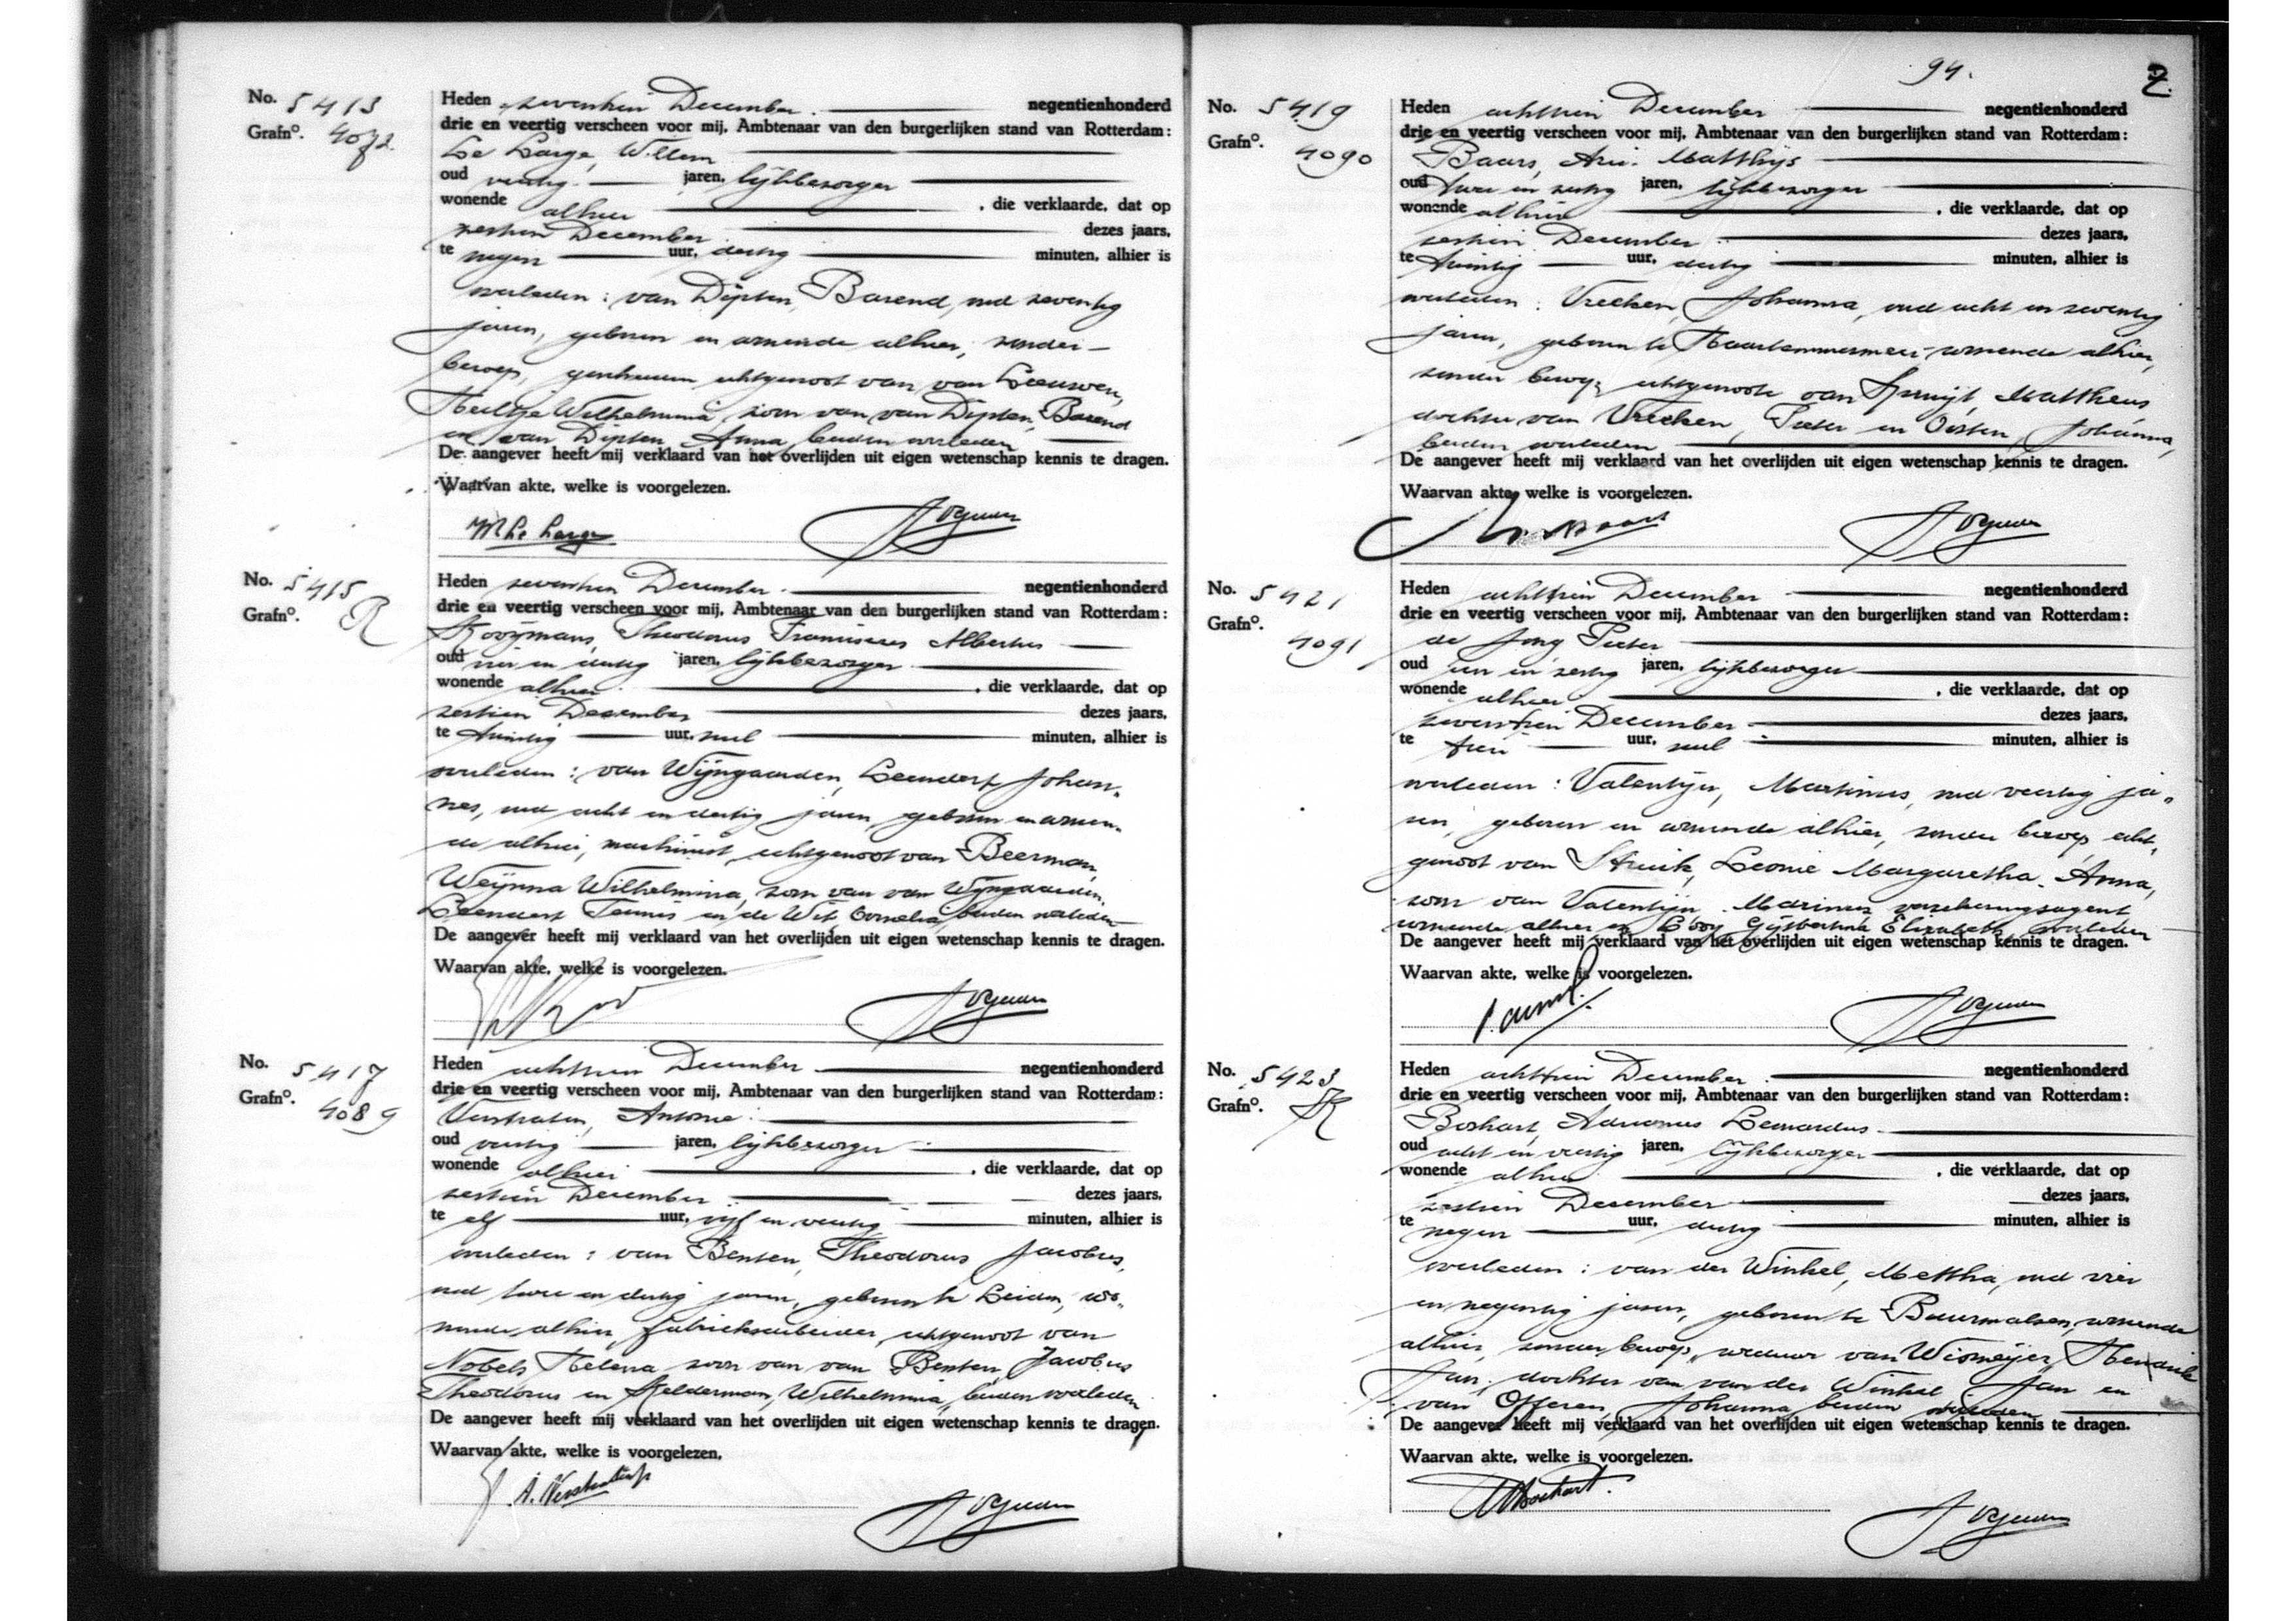 No. 5413
Grafno. 4072
Heden zeventien December negentienhonderd
drie en veertig verscheen voor mij, Ambtenaar van den burgerlijken stand van Rotterdam:
Le Large, Willem
oud veertig jaren, lijkbezorger
wonende alhier , die verklaarde, dat op
zestien December dezes jaars,
te negen uur, dertig minuten, alhier is
overleden: van Dipten, Barend, oud zeventig
jaren, geboren en wonende alhier, zonder
beroep, gescheiden echtgenoot van van Leeuwen,
Wilhelmina, zoon van van Dipten, Barend
en van Dipten, Anna, beiden overleden
De aangever heeft mij verklaard van het overlijden uit eigen wetenschap kennis te dragen.
Waarvan akte, welke is voorgelezen.
W le Large
No. 5415
Grafno. R
Heden zeventien December negentienhonderd
drie en veertig verscheen voor mij, Ambtenaar van den burgerlijken stand van Rotterdam:
Kooijmans, Theodorus Franciscus Albertus
oud vier en dertig jaren, lijkbezorger
wonende alhier , die verklaarde, dat op
zestien December dezes jaars,
te twintig uur, nul minuten, alhier is
overleden: van Wijngaarden, Leendert Johan-
nes, oud acht en dertig jaren, geboren en wonen-
de alhier, machinist, echtgenoot van Beerman,
Weijnna Wilhelmina, zoon van van Wijngaarden,
Leendert Teunis en de Wit, Cornelia, beiden overleden
De aangever heeft mij verklaard van het overlijden uit eigen wetenschap kennis te dragen.
Waarvan akte, welke is voorgelezen.
No. 5417
Grafno. 4089
Heden achttien December negentienhonderd
drie en veertig verscheen voor mij, Ambtenaar van den burgerlijken stand van Rotterdam:
Verstraten, Antonie
oud veertig jaren, lijkbezorger
wonende alhier , die verklaarde, dat op
zestien December dezes jaars,
te elf uur, vijf en veertig minuten, alhier is
overleden: van Benten, Theodorus Jacobus,
oud twee en dertig jaren, geboren te Leiden, wo-
nende alhier, fabrieksarbeider, echtgenoot van
Nobels, Helena, zoon van van Benten, Jacobus
Theodorus en Kelderman, Wilhelmina, beiden overleden
De aangever heeft mij verklaard van het overlijden uit eigen wetenschap kennis te dragen.
Waarvan akte, welke is voorgelezen.
94.
2
No. 5419
Grafno. 4090
Heden achttien December negentienhonderd
drie en veertig verscheen voor mij, Ambtenaar van den burgerlijken stand van Rotterdam:
Baars, Arie Matthijs
oud twee en zestig jaren, lijkbezorger
wonende alhier , die verklaarde, dat op
zestien December dezes jaars,
te twintig uur, dertig minuten, alhier is
overleden: Vreeken, Johanna, oud acht en zeventig
jaren, geboren te Haarlemmermeer, wonende alhier,
zonder beroep, echtgenoote van Spruijt, Mattheus
dochter van Vreeken, Pieter en Oosten, Johanna,
beiden overleden
De aangever heeft mij verklaard van het overlijden uit eigen wetenschap kennis te dragen.
Waarvan akte, welke is voorgelezen.
No. 5421
Grafno. 4091
Heden achttien December negentienhonderd
drie en veertig verscheen voor mij, Ambtenaar van den burgerlijken stand van Rotterdam:
de Jong Pieter
oud een en zestig jaren, lijkbezorger
wonende alhier , die verklaarde, dat op
zeventien December dezes jaars,
te tien uur, nul minuten, alhier is
overleden: Valentijn, Martinus, oud veertig ja-
ren, geboren en wonende alhier, zonder beroep, echt-
genoot van Struik, Leonie Margaretha Anna,
zoon van Valentijn, Marinus, verzekeringsagent,
wonende alhier en Gijsbertina Elizabeth, overleden
De aangever heeft mij verklaard van het overlijden uit eigen wetenschap kennis te dragen.
Waarvan akte, welke is voorgelezen.
No. 5423
Grafno. R
Heden achttien December negentienhonderd
drie en veertig verscheen voor mij, Ambtenaar van den burgerlijken stand van Rotterdam:
Boshart, Adrianus Leonardus
oud acht en veertig jaren, lijkbezorger
wonende alhier , die verklaarde, dat op
zestien December dezes jaars,
te negen uur, dertig minuten, alhier is
overleden: van der Winkel, Mettha, oud vier
en negentig jaren, geboren te Buurmalsen, wonende
alhier, zonder beroep, weduwe van Wismeijer, Hendrik
Jan, dochter van van der Winkel, Jan en
van Offeren, Johanna, beiden overleden
De aangever heeft mij verklaard van het overlijden uit eigen wetenschap kennis te dragen.
Waarvan akte, welke is voorgelezen.